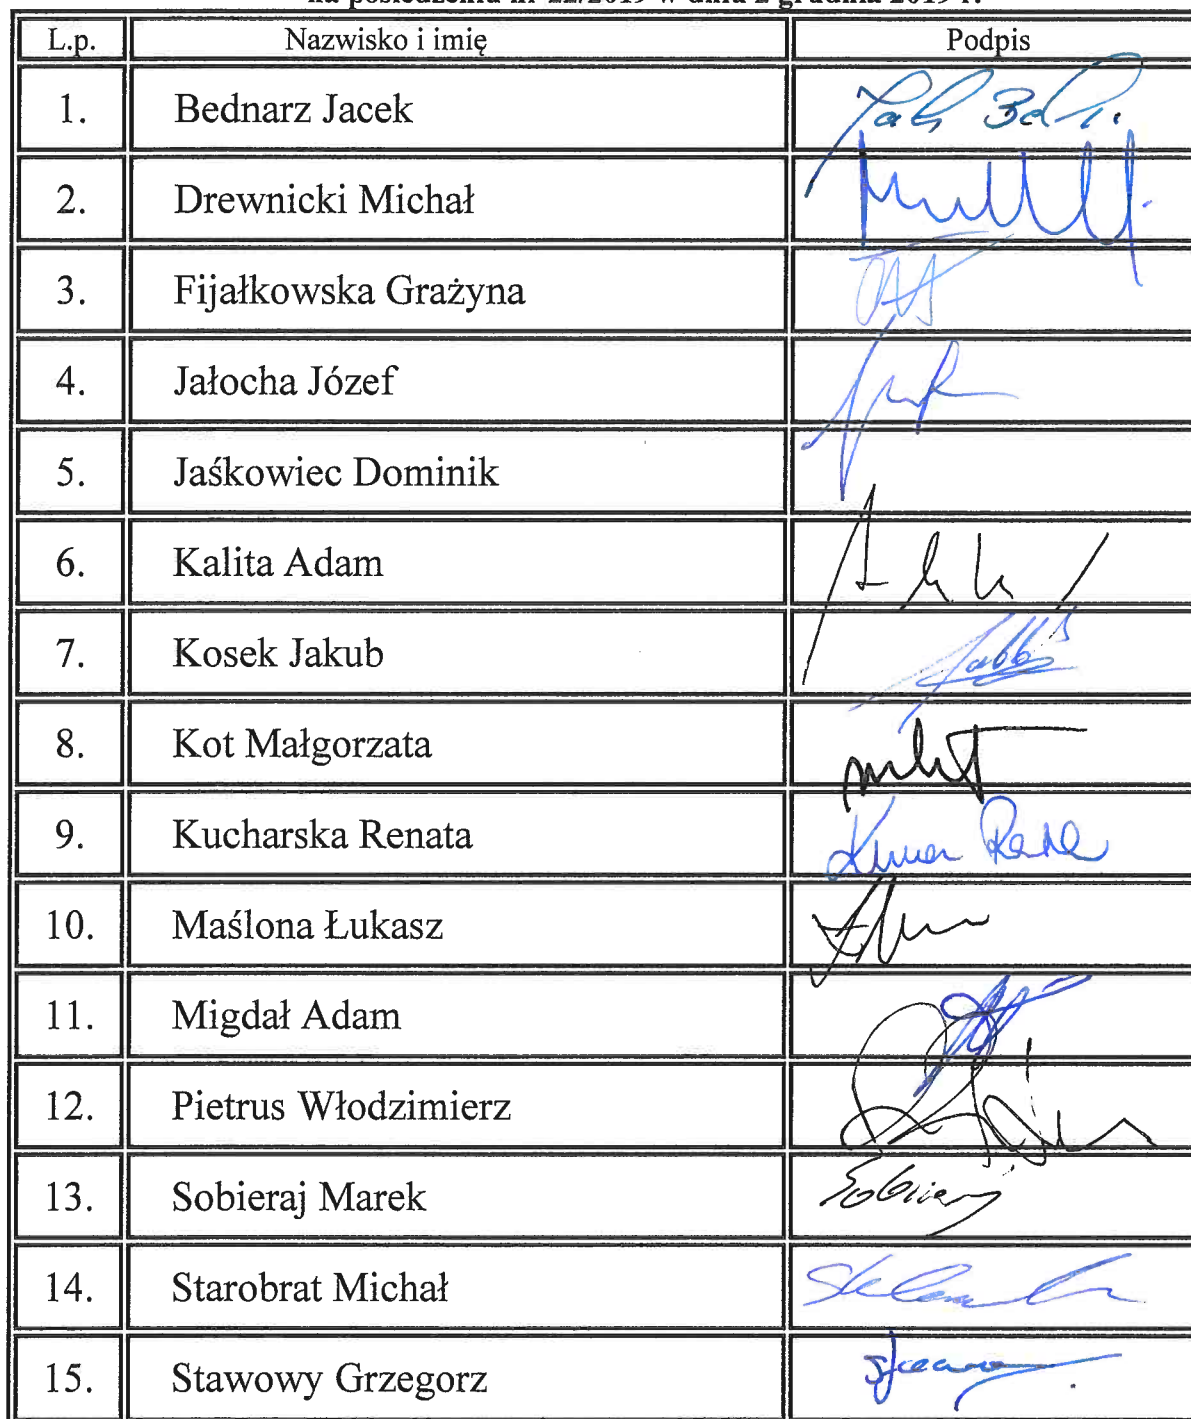 na posiedzeniu nr 22/2019 w dniu 2 grudnia 2019 r.
L.p. Nazwisko i imię Podpis
1. Bednarz Jacek
2. Drewnicki Michał
3. Fijałkowska Grażyna
4. Jałocha Józef
5. Jaśkowiec Dominik
6. Kalita Adam
7. Kosek Jakub
8. Kot Małgorzata
9. Kucharska Renata
10. Maślona Łukasz
11. Migdał Adam
12. Pietrus Włodzimierz
13. Sobieraj Marek
14. Starobrat Michał
15. Stawowy Grzegorz